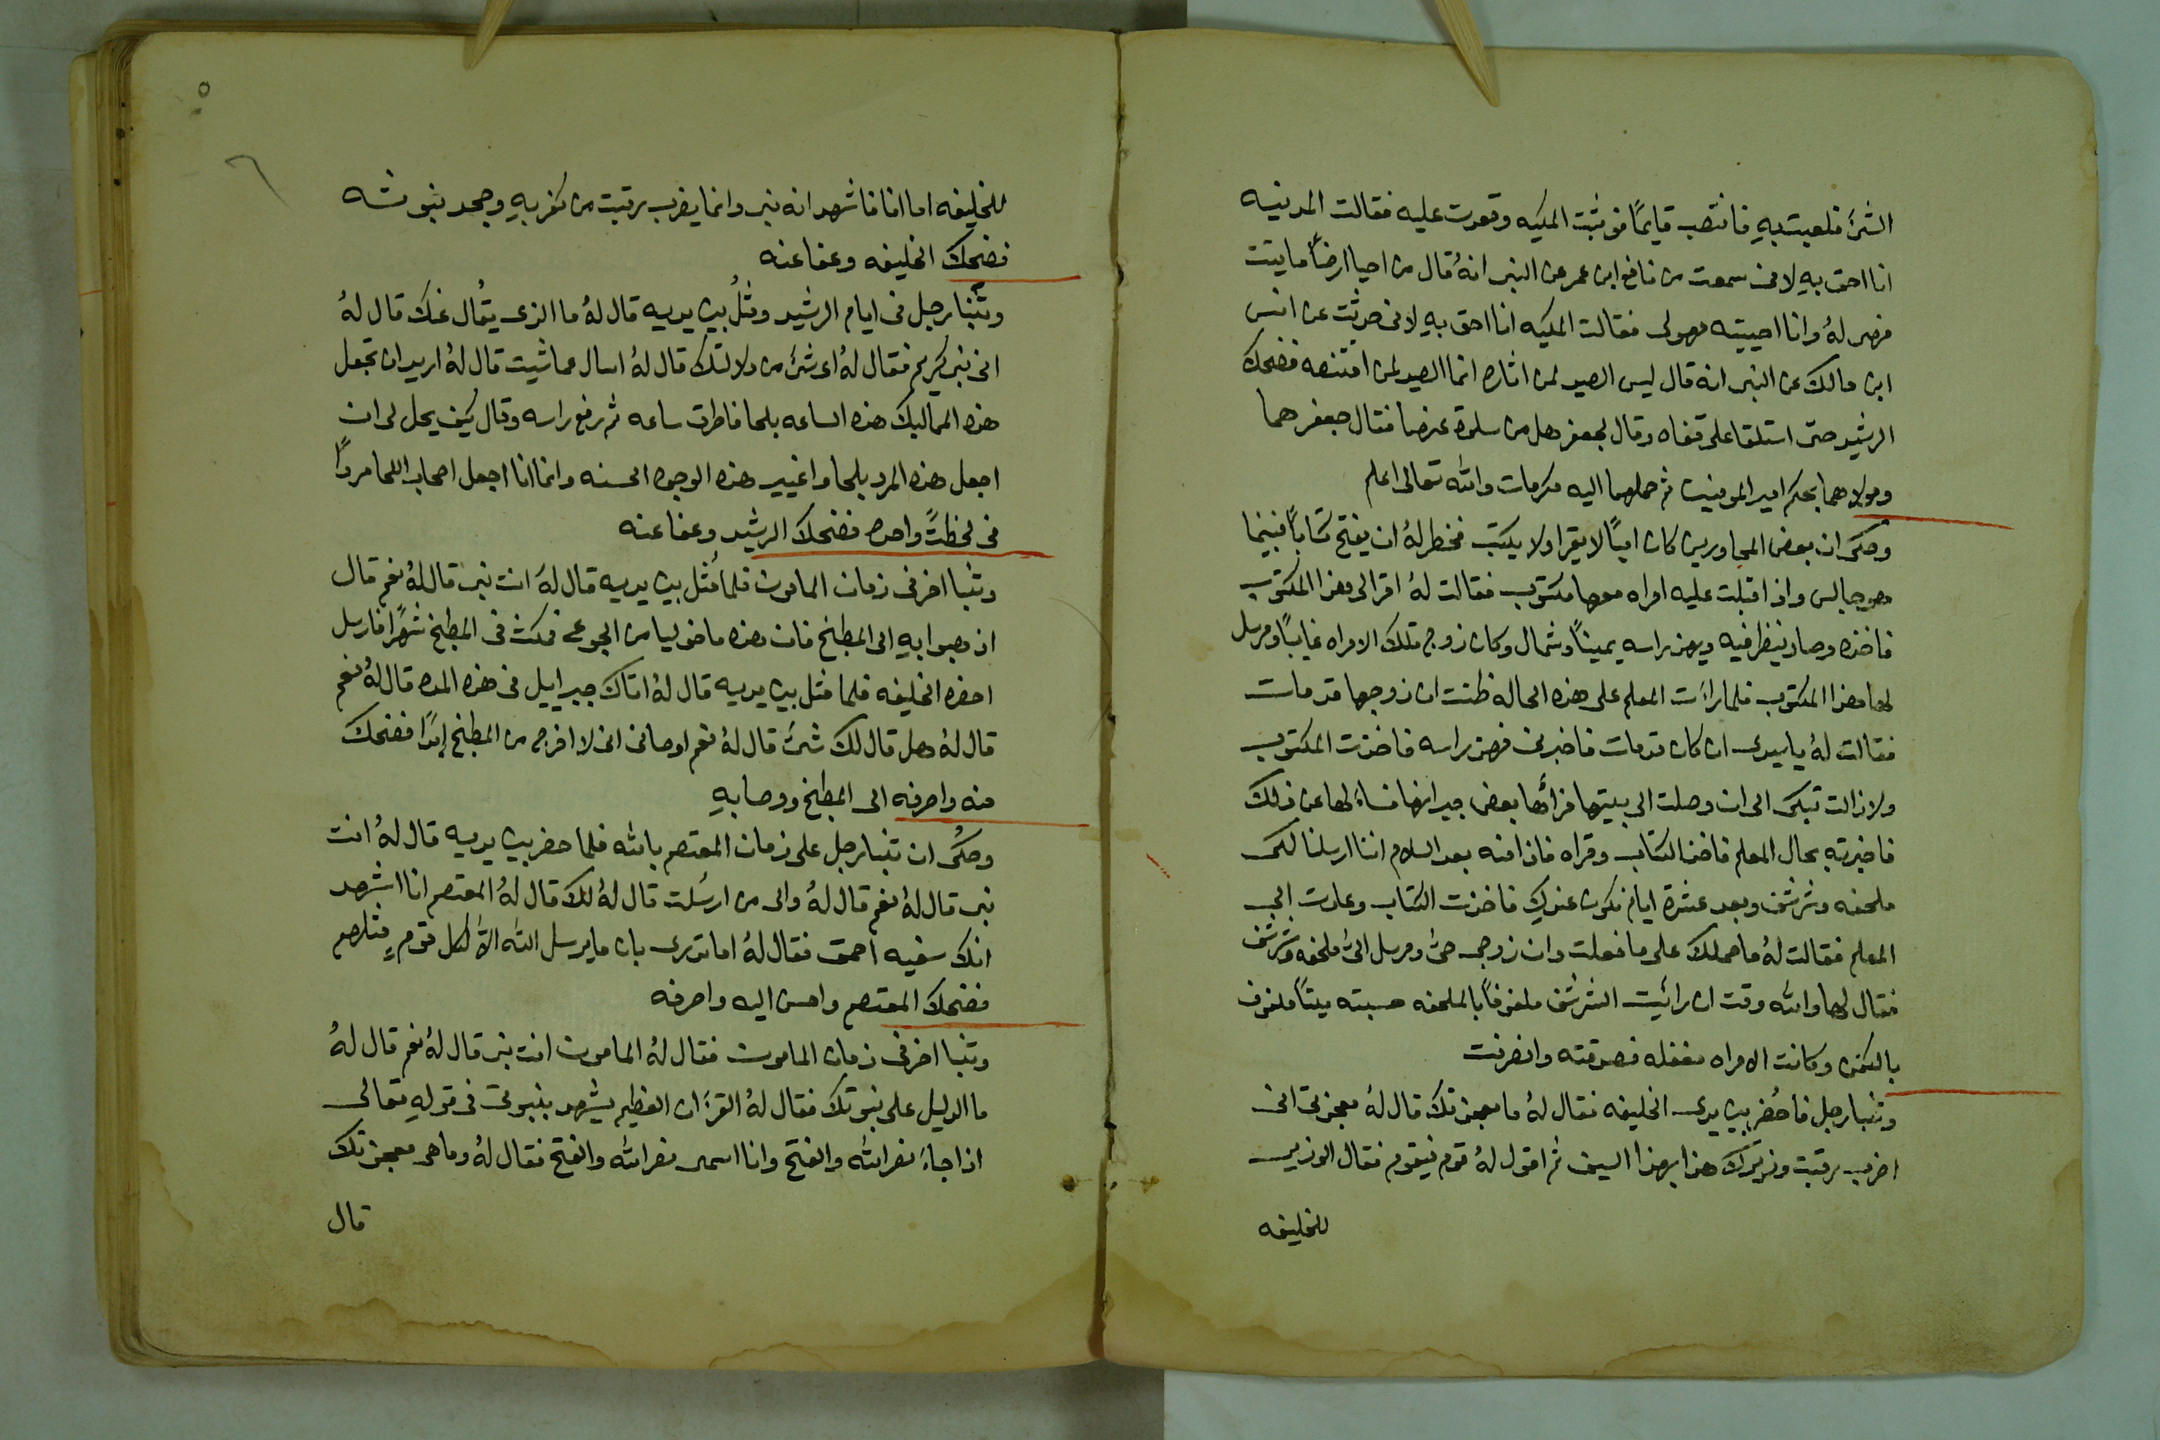 الشئ فلعبت به فانتصب قايمًا فوثبت المكيه وقعدت عليه فقالت المدنيه
انا احق بهِ لانى سمعت من نافع ابن عمر عن النبى انهُ قال من احيا ارضًا مايتت
فهى لهُ وانا احييته فهو لى فقالت المكيه انا احق بهِ لانى حدثت عن انس
ابن مالك عن النبى انه قال ليس الصيد لمن اثاره انما الصيد لمن اقتنصه فضحك
الرشيد حتى استلقا على قفاه وقال لجعفر هل من سلوة عنهما فقال جعفر هما
ومولاهما بحكم امير المومنين ثم حملهما اليه مكرمات والله تعالى اعلم
وحكى ان بعض المجاورين كان اميًا لا يقرا ولا يكتب فخطر لهُ ان يفتح كتابًا فبينما
هو جالس واذ اقبلت عليه امراه معها مكتوب فقالت لهُ اقرا لى هذا المكتوب
فاخذه وصار ينظر فيه ويهز براسه يمينًا وشمال وكان زوج تلك الامراه غايبًا ومرسل
لها هذا المكتوب فلما رات المعلم على هذه الحاله ظنت ان زوجها قد مات
فقالت لهُ ياسيدى ان كان قد مات فاخبرنى فهز براسه فاخذت المكتوب
ولا زالت تبكى الى ان وصلت الى بيتها فرأها بعض جيرانها فسالها عن ذلك
فاخبرته بحال المعلم فاخذ الكتاب وقراه فاذا فيه بعد السلام اننا ارسلنا لكى
ملحفه وشرشف وبعد عشرة ايام نكون عندكِ فاخذت الكتاب وعادت الى
المعلم فقالت لهُ ما حملك على ما فعلت وان زوجى حىّ ومرسل الىّ ملحفه وشرشف
فقال لها والله وقت ان رائيت الشرشف ملفوفًا بالملحفه حسبته ميتًا ملفوف
بالكفن وكانت الامراه مغفله فصدقته وانصرفت
وتنبا رجل فاحُضر بين يدى الخليفه فقال لهُ ما معجزتك قال لهُ معجزتى انى
اضرب رقبت وزيرك هذا بهذا السيف ثم اقول لهُ قوم فيقوم فقال الوزير
للخليفه
٥
٦
للخليفه اما انا فاشهد انه نبى وانما يضرب رقبت من كفر بهِ وجحد نبوته
فضحك الخليفه وعفا عنه
وتنبا رجل فى ايام الرشيد ومثُل بين يديه قال لهُ ما الذى يقُال عنك قال لهُ
انى نبى كريم فقال لهُ اى شئ من دلالتك قال لهُ اسال عما شيت قال لهُ اريد ان تجعل
هذه المماليك هذه الساعه بلحا فاطرق ساعه ثم رفع راسه وقال كيف يحل لى ان
اجعل هذه المرد بلحا واغيير هذه الوجوه الحسنه وانما انا اجعل اصحاب اللحا مردًا
فى لحظتً واحده فضحك الرشيد وعفا عنه
وتنبا اخر فى زمان المامون فلما مُثل بين يديه قال لهُ انت نبى قال لهُ نعم قال
اذهبوا بهِ الى المطبخ فان هذه ماخوليا من الجوع فمكث فى المطبخ شهرًا فارسل
احضره الخليفه فلما مثل بين يديه قال لهُ اتاك جبراييل فى هذه المده قال لهُ نعم
قال لهُ هل قال لك شئ قال لهُ نعم اوصانى انى لا اخرج من المطبخ ابدًا فضحك
منه واصرفه الى المطبخ ووصا بهِ
وحكُى ان تنبا رجل على زمان المعتصم بالله فلما حضر بين يديه قال لهُ انت
نبى قال لهُ نعم قال لهُ والى من ارسُلت قال لهُ لك قال لهُ المعتصم انا اشهد
انك سفيه احمق فقال لهُ اما تدرى بان ما يرسل الله الا لكل قوم مثلهم
فضحك المعتصم واحسن اليه واصرفه
وتنبا اخر فى زمان المامون فقال لهُ المامون انت نبى قال لهُ نعم قال لهُ
ما الدليل على نبوتك فقال لهُ القرءان العظيم يشهد بنبوتى فى قولهِ تعالى
اذا جاء نصر الله والفتح وانا اسمى نصر الله والفتح فقال لهُ وما هى معجزتك
قال